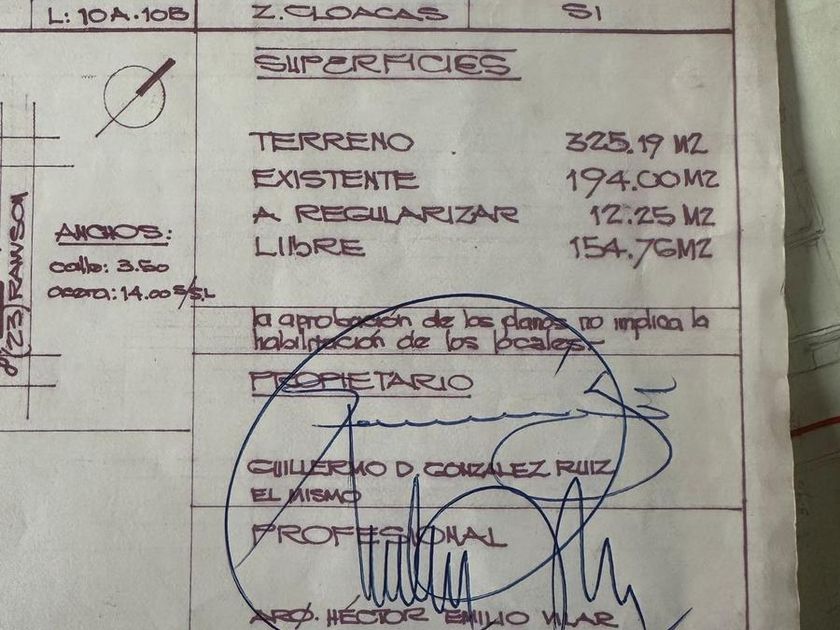 L: 10A.10B
Z. CLOACAS SI
SUPERFICIES
TERRENO 325.19 M2
EXISTENTE 194.00 M2
A REGULARIZAR 12.25 M2
LIBRE 154.76 M2
(23) RAWSON
ANCHOS:
calle: 3.50
14.00 S/S.L
la aprobación de los planos no implica la
habilitación de los locales.-
PROPIETARIO
GUILLERMO D. GONZALEZ RUIZ
EL MISMO
PROFESIONAL
ARQ. HÉCTOR EMILIO VILAR